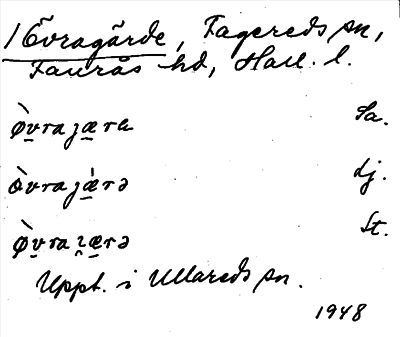 1 Övragärde, Fagereds sn,
Faurås hd, Hall. l.
ø̀v̲raȷæ̲ra Sa.
òvraȷæ̲̀rə dj.
ø̀v̲raɿ̯æ̲rə St.
Uppt. i Ullareds sn.
1948